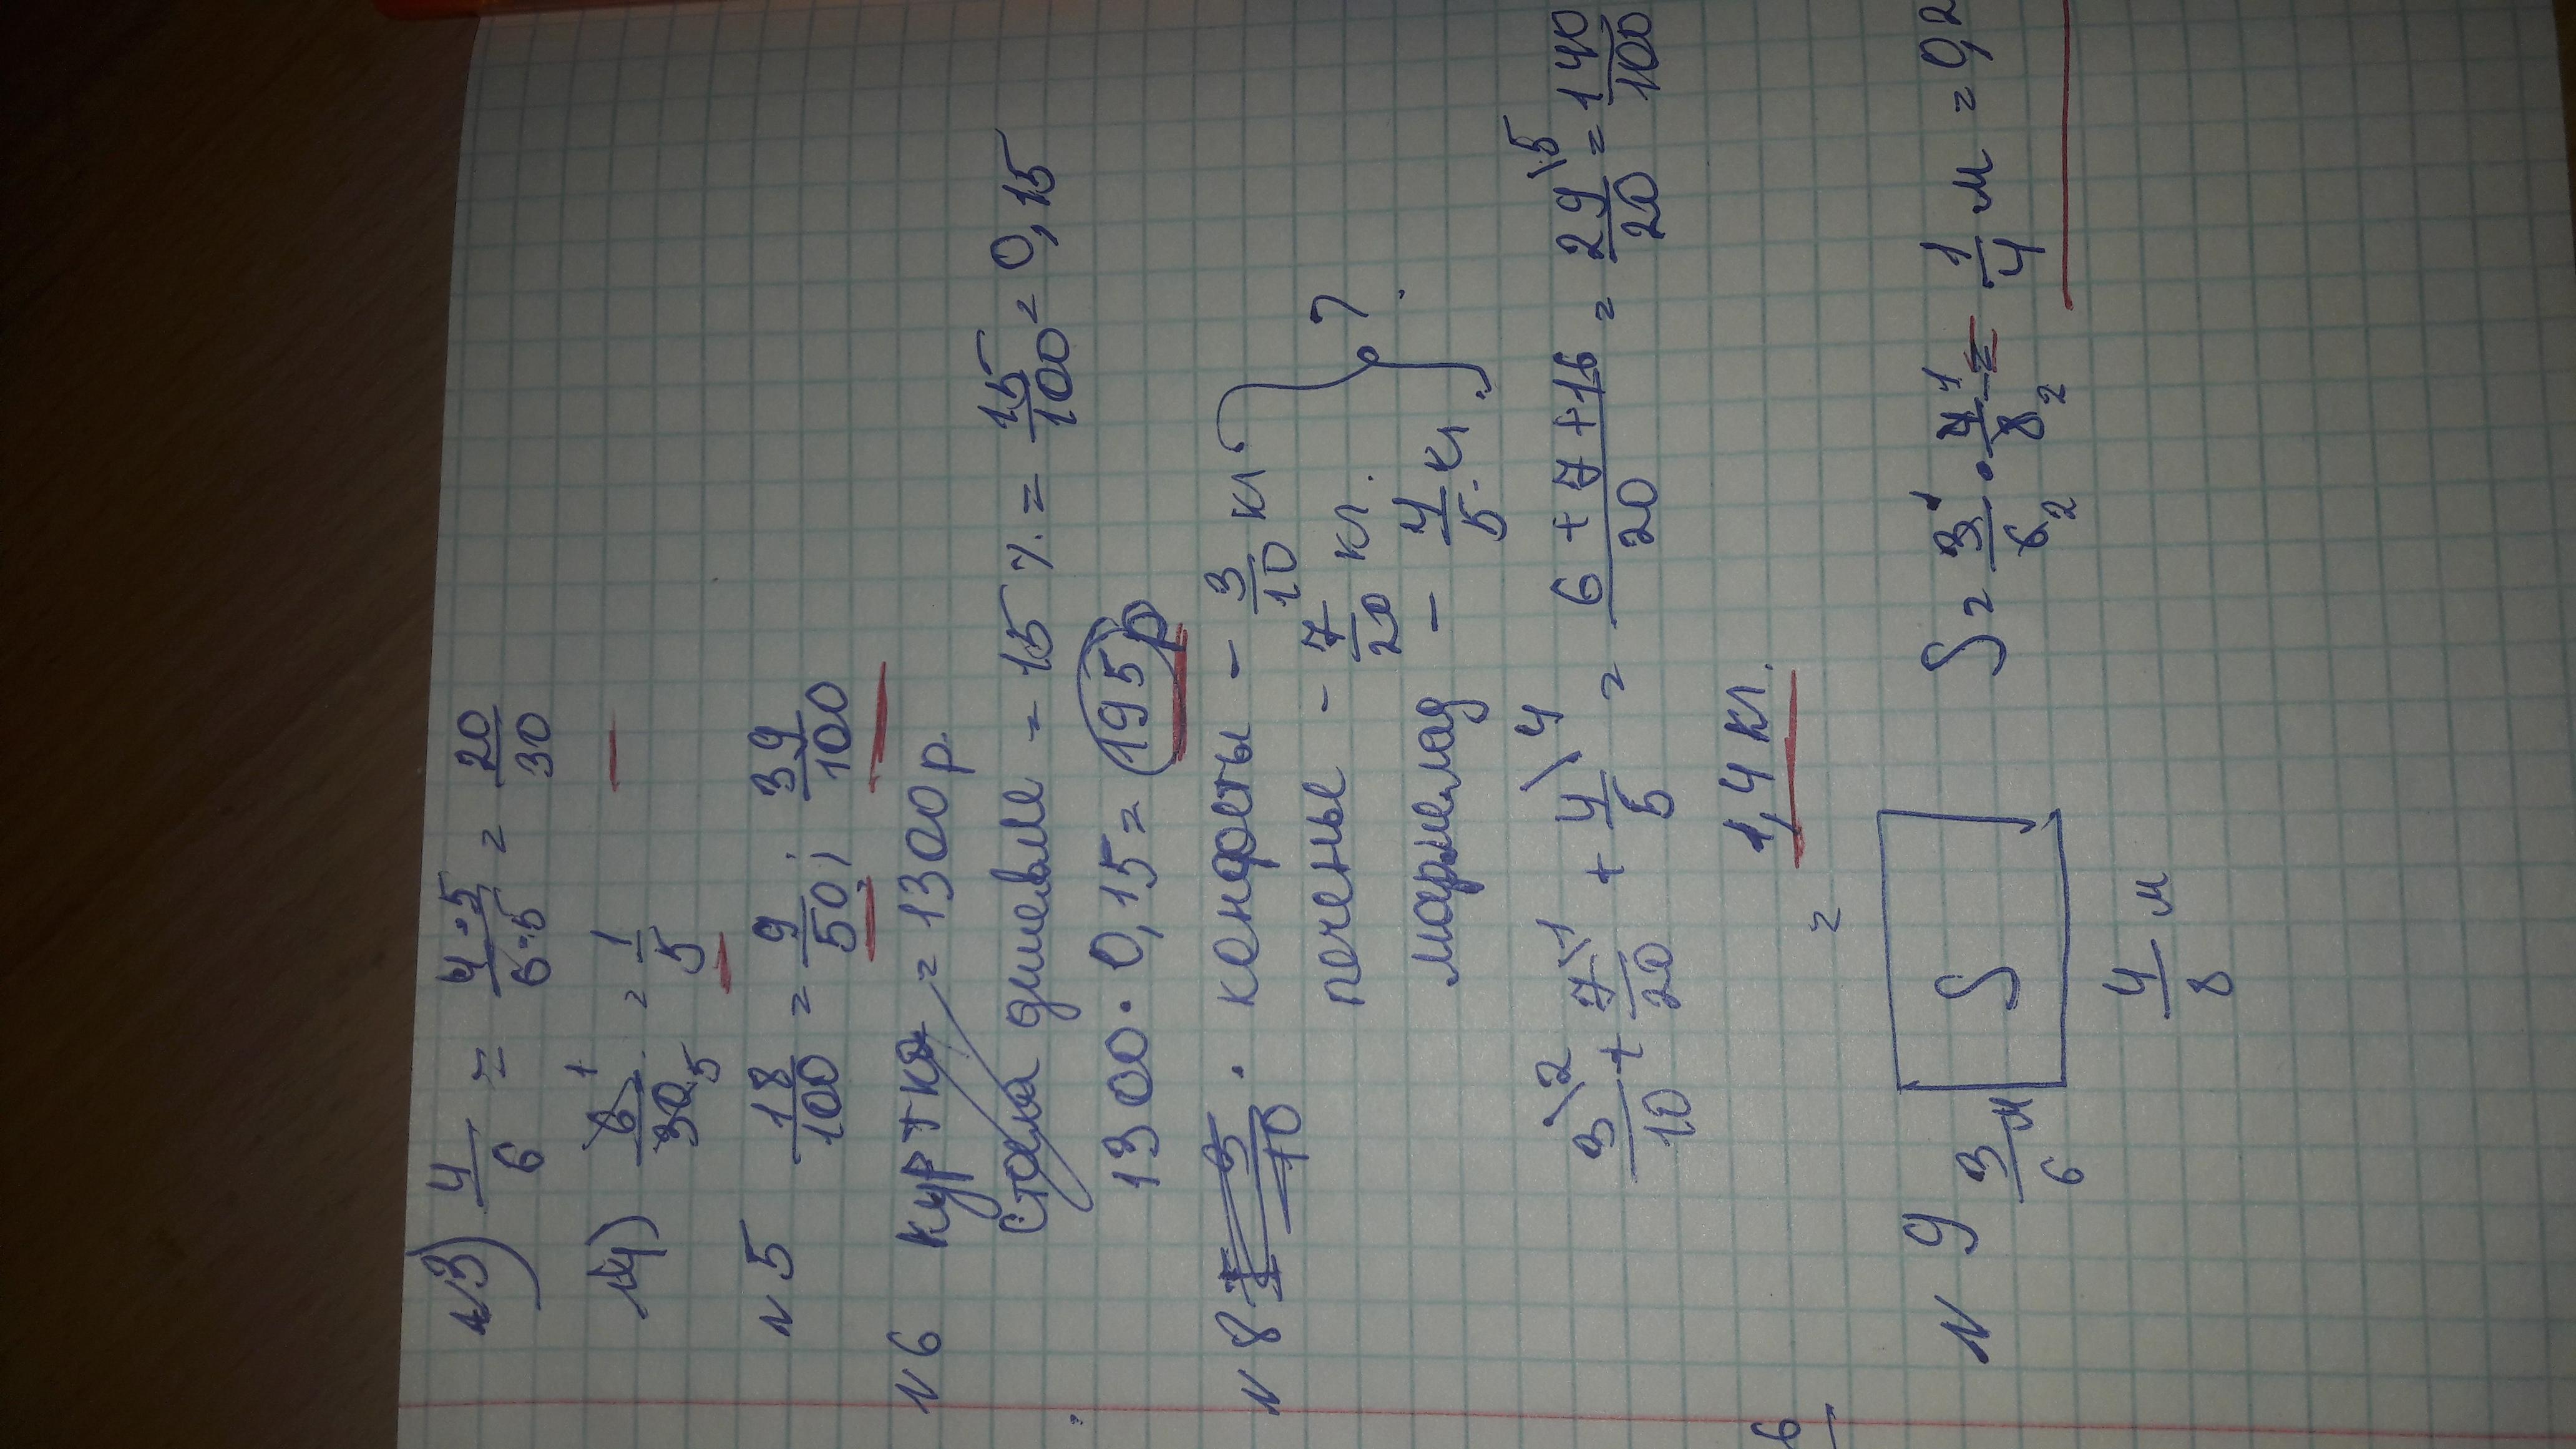 N3) 4/6 = 4·5/6·5 = 20/30
N4) 6/30 = 1/5
N5 18/100 = 9/50; 39/100
N6 куртка = 1300р.
Стала дешевле = 15% = 15/100 = 0,15
1300·0,15 = 195р
N8. конфеты - 3/10 кг
печенье - 7/20 кг.
мармелад - 4/5 кг. } ?
3/10\2 + 7/20\1 + 4/5\4 = 6+7+16/20 = 29/20\5 = 140/100
= 1,4 кг.
N9 3/6 м S S = 3/6 · 4/8 = 1/4 м = 0,2
4/8 м
6